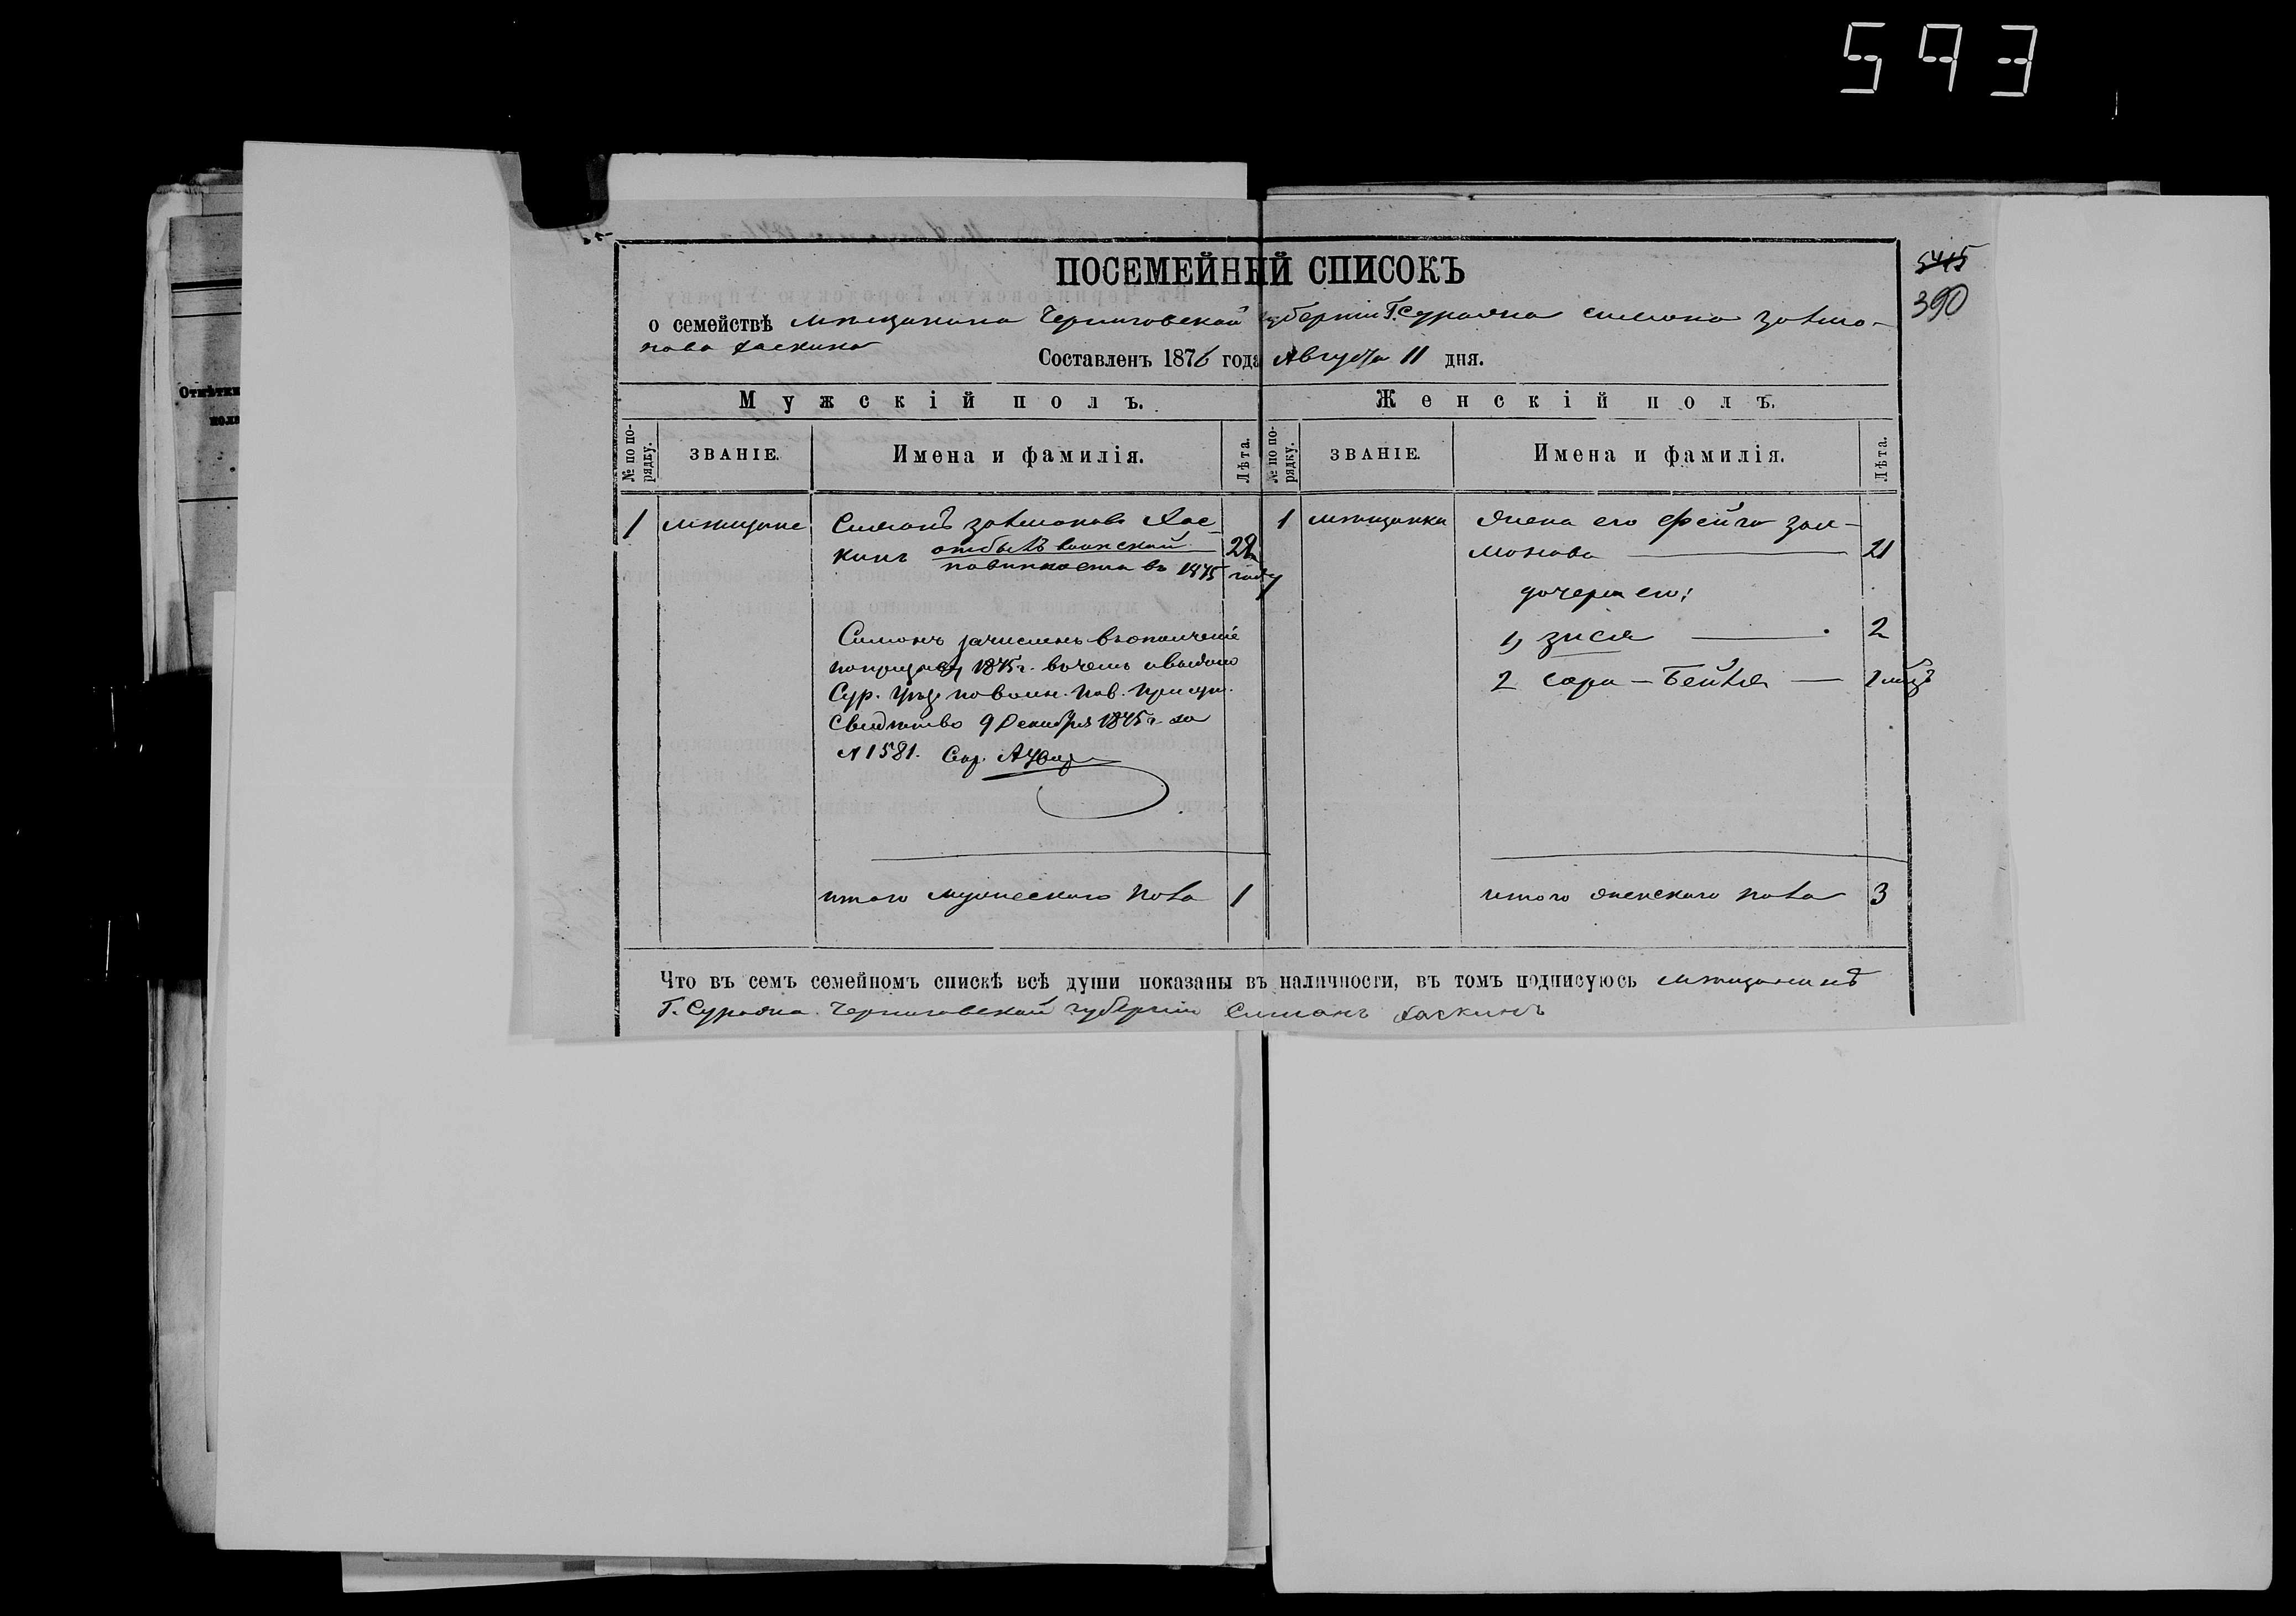 593
5415
390
ПОСЕМЕЙНЫЙ СПИСОКЪ
о семействѣ мѣщанина Черниговской губернiи Г. Суража Симона Залмо-
нова Хаскина
Составленъ 1876 года Августа 11 дня.
Мужскій полъ.
Женскій полъ.
№ по по-
рядку.
ЗВАНІЕ.
Имена и фамилія.
Лѣта.
№ по по-
рядку.
ЗВАНІЕ.
Имена и фамилія.
Лѣта.
Отмѣтки
1 мѣщане Симонъ Залмоновъ Хас-
кинъ отбылъ воинской 22
повинности въ 1875 году
Симонъ зачисленъ въ ополченіе
1875 г. въ чемъ и выдано
Сур. Уѣзд. по воин. пов. присут.
Свидѣтство 9 Декабря 1875 г. за
№ 1581.
итого мужескаго пола 1
1 мѣщанка жена его Фейга Зал-
монова 21
дочери его:
1, Зися 2
2 Сара-Бейля
итого женскаго пола 3
Что въ семъ семейномъ спискѣ всѣ души показаны въ наличности, въ томъ подписуюсь мѣщанинъ
Г. Суража Черниговской губерніи Симонъ Хаскинъ